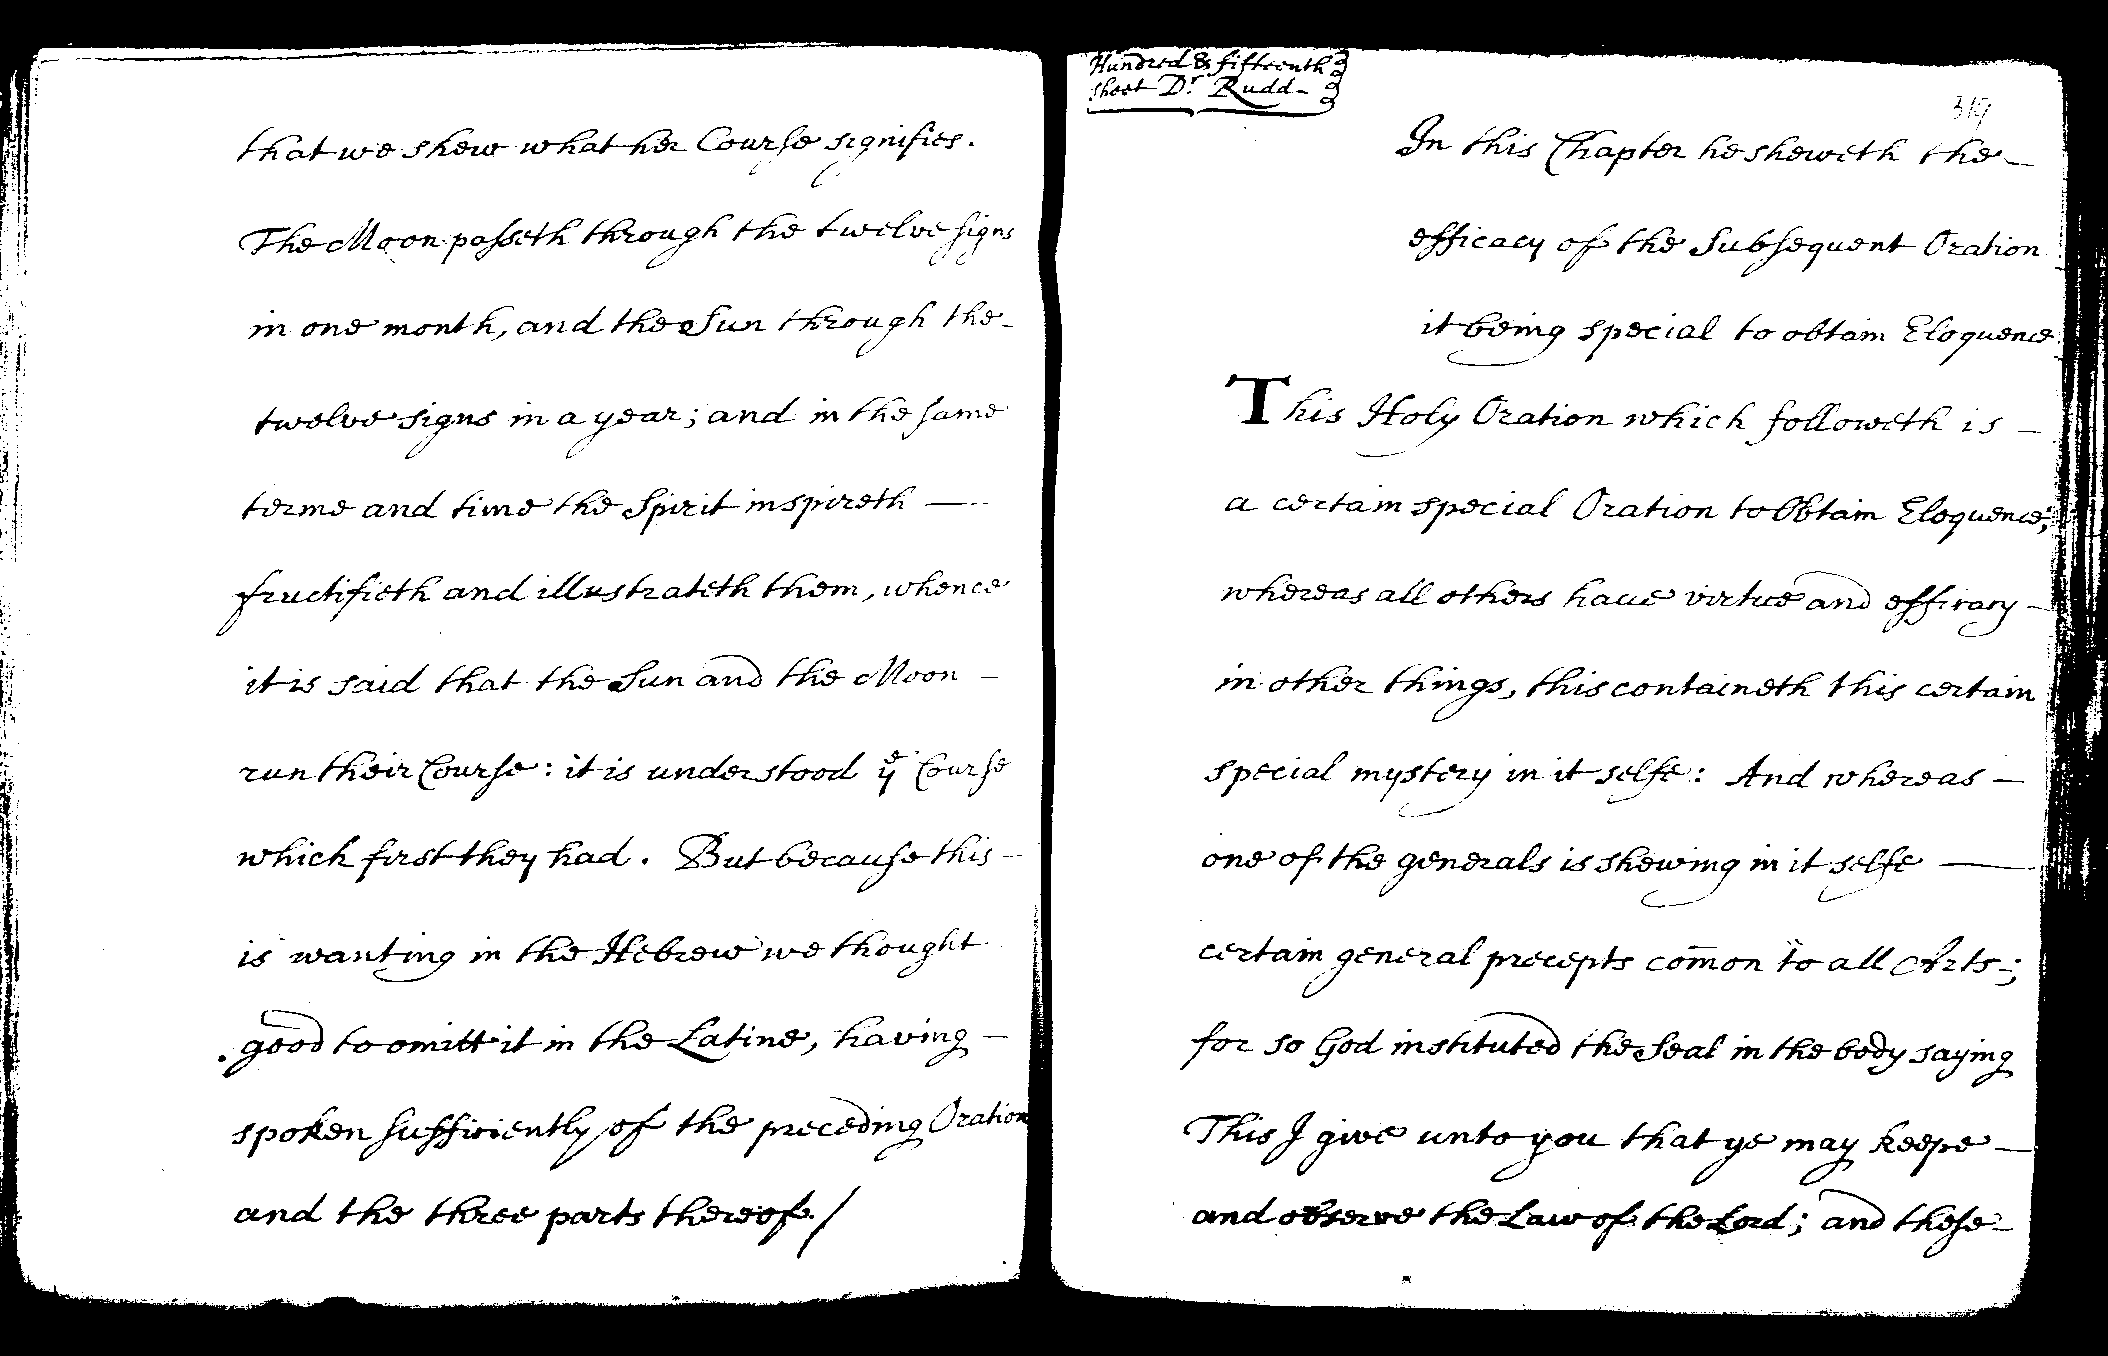 that we shew what her Course signifies.
The Moon passeth through the twelve signs
in one month, and the Sun through the –
twelve signs in a year; and in the same
terme and time the Spirit inspireth —
fructifieth and illustrateth them, whence
it is said that the Sun and the Moon –
run their Course: it is understood yͤ Course
which first they had. But because this –
is wanting in the Hebrew we thought
good to omitt it in the Latine, having –
spoken sufficiently of the preceding Oration
and the three parts thereof./
Hundred & fifteenth
sheet Dʳ Rudd –
In this Chapter he sheweth the –
efficacy of the Subsequent Oration
it being special to obtain Eloquence
This Holy Oration which followeth is –
a certain special Oration to Obtain Eloquence;
whereas all others have virtue and efficacy –
in other things, this containeth this certain
special mystery in it selfe: And whereas –
one of the generals is shewing in it selfe —
certain general precepts com̄on to all Arts;
for so God instituted the Seal in the body saying
This I give unto you that ye may keepe –
and observe the Law of the Lord; and these –